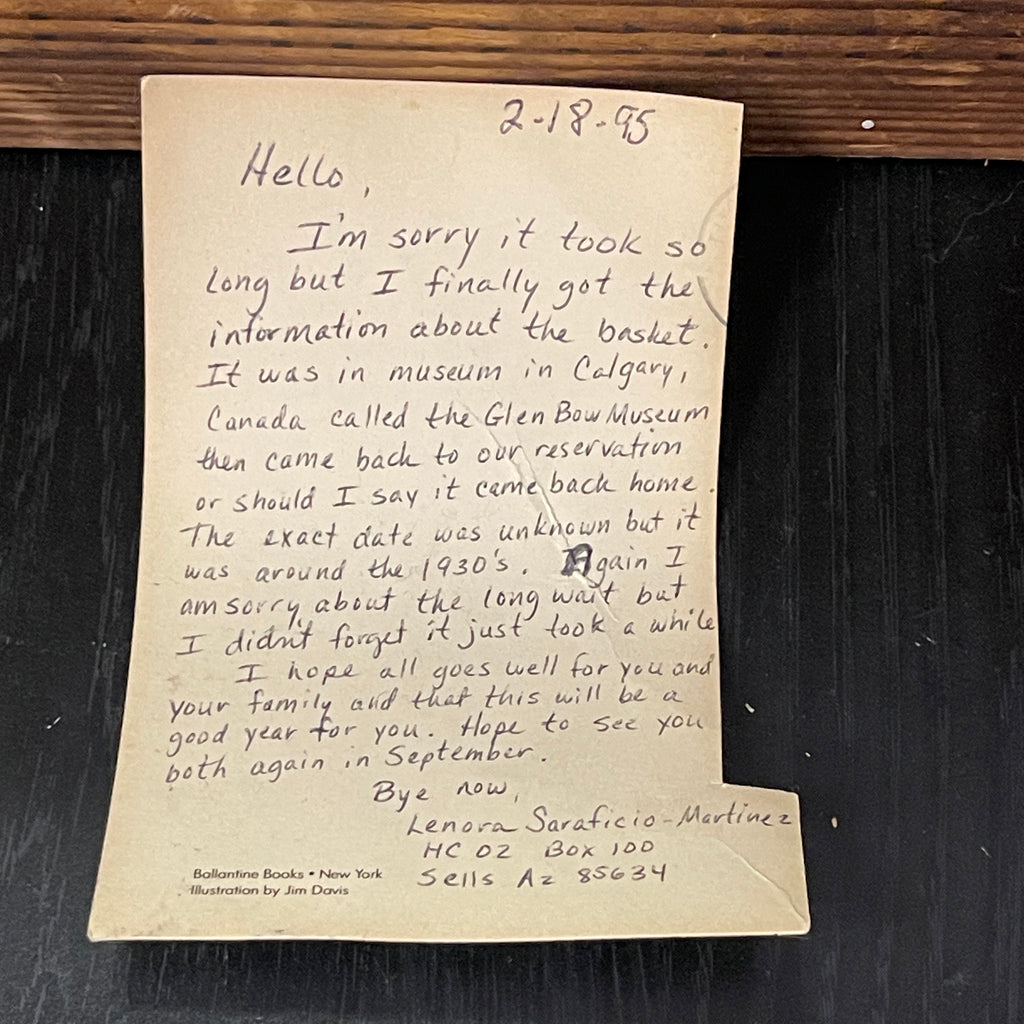 2-18-95
Hello,
I'm sorry it took so
long but I finally got the
information about the basket.
It was in museum in Calgary,
Canada called the Glen Bow Museum
then came back to our reservation
or should I say it came back home.
The exact date was unknown but it
was around the 1930's. Again I
am sorry about the long wait but
I didn't forget it just took a while
I hope all goes well for you and
your family and that this will be a
good year for you. Hope to see you
both again in September.
Bye now,
Lenora Saraficio-Martinez
HC 02 Box 100
Sells Az 85634
Ballantine Books • New York
Illustration by Jim Davis